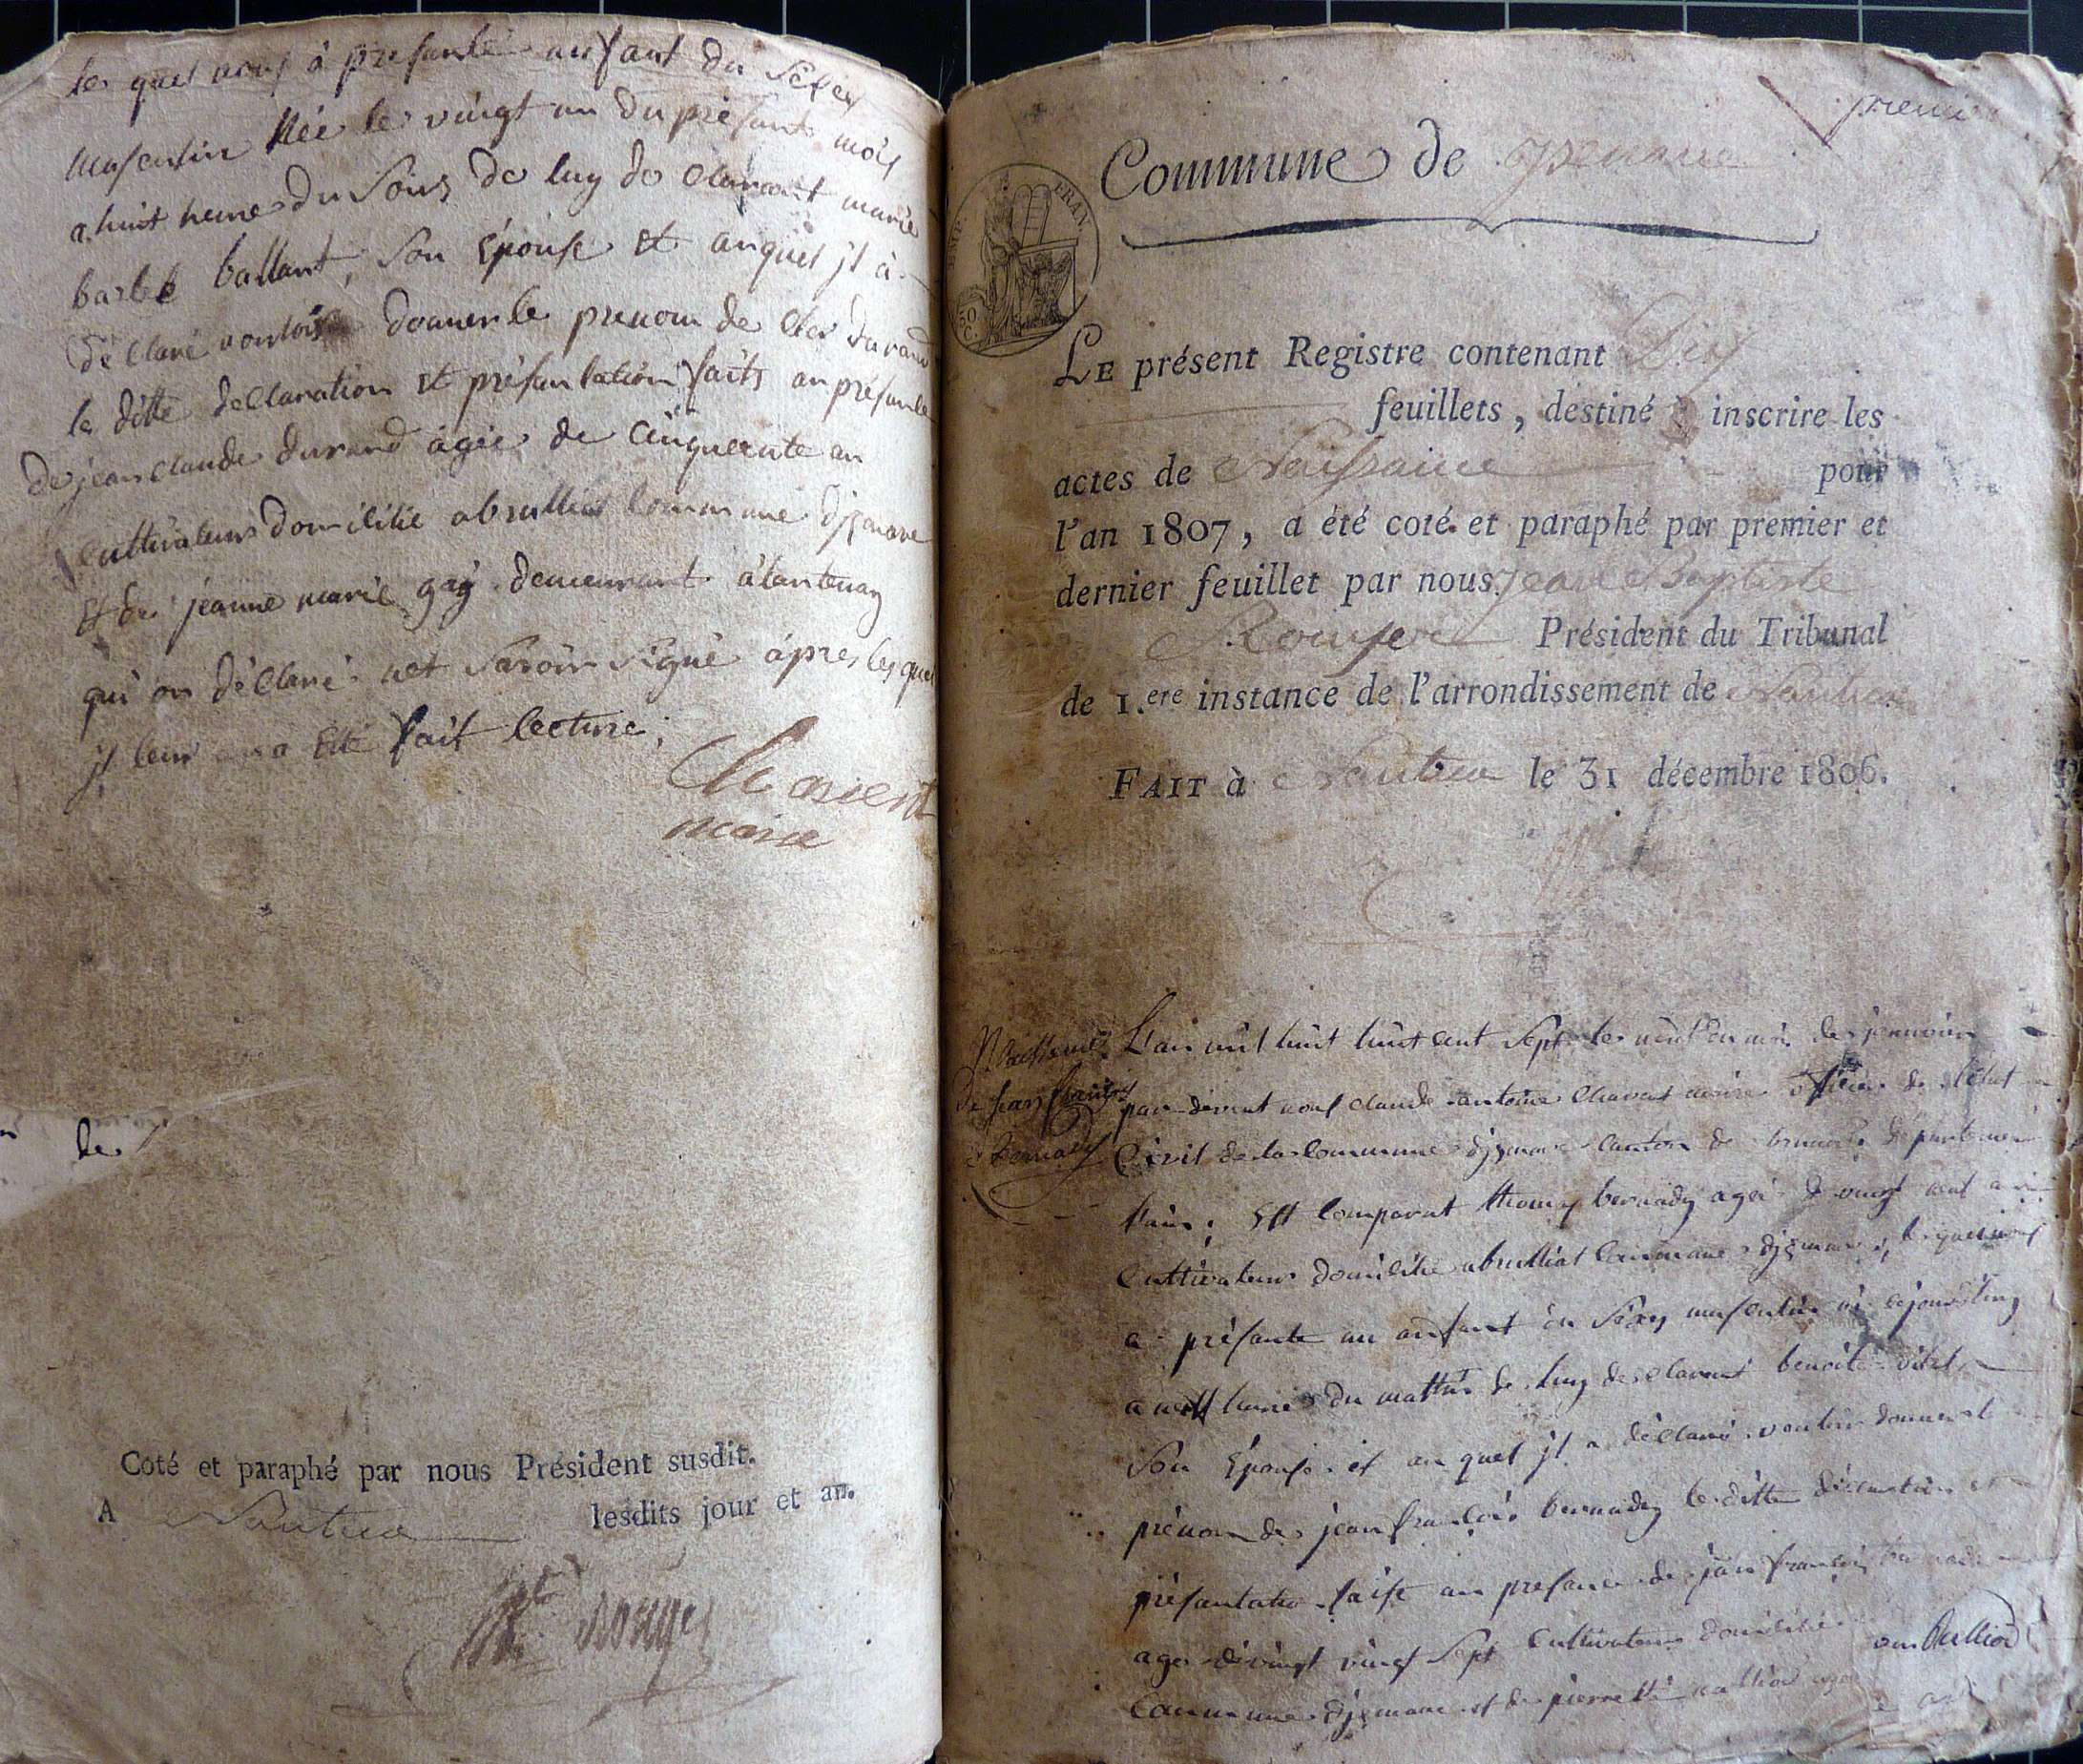 le quel nous à presenté un fant du Sexes
masculin Née le vingt un du presant mois
a huit heure du Soirs de luy de Clarant marie
barbe ballant, Son Epouse Et auquel jl à
déClaré vouloir donner le prenom de durand
la ditte declaration Et présantation faits an présance
de jean claude durand agée de Cinquente an
Cultivateurs domicilié a brulliat Commune djzenave
Et de jeanne marie gay demeurant à lantenay
qui on déClaré net Savoir Signé àpres les quel
jl leur an a Eté fait lecture,
Maire
de
Coté et paraphé par nous Président susdit.
A Nantua lesdits jour et an.
Rouyer
premier
Commune de jzenave
EMP. FRAN.
50 C.
LE présent Registre contenant Dix
feuillets, destiné à inscrire les
actes de Naissance pour
l'an 1807, a été coté et paraphé par premier et
dernier feuillet par nous Jean Baptiste
Rouyer Président du Tribunal
de 1.ere instance de l'arrondissement de Nantua
FAIT à Nantua le 31 décembre 1806.
Naissance
de jean françois
Bernady
L'an mil huit huit cent Sept le neuf du mois de janvier
par devant nous claude antoine maire officier de l'état
Civil de la Commune djzenave canton de département
l'ain; Est Comparut thomas bernady agé de vingt neuf an
Cultivateur domicilié a brulliat Commune djzenave, le quel nous
a présanté un anfant du Sexes masculin né
a neuf heure du mattin de luy de clarant benoite
Son Epouse et au quel jl a déClaré vouloir donner le
prénom de jean françois bernady la ditte déclaration et
présantation faite an presance de jean françois
age de vingt vingt Sept Cultivateur domicilié au Bulliod
Commune djzenave et de pierrette